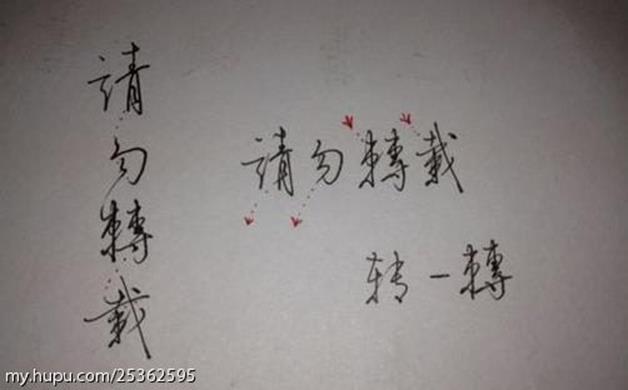 請勿轉載
請勿轉載
转一轉
my.hupu.com/25362595